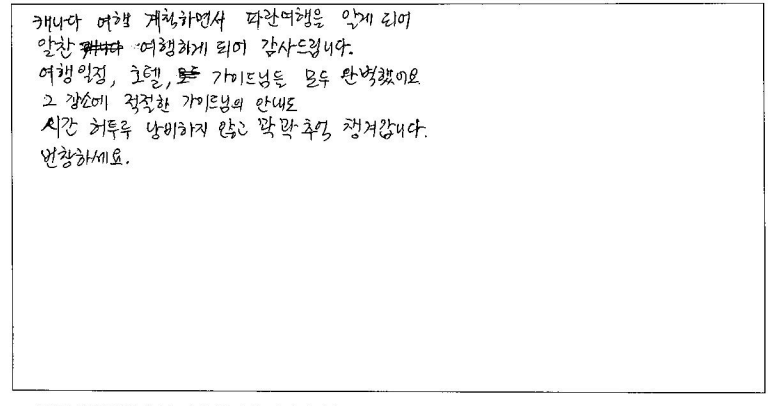 캐나다 여행 계획하면서 파란여행을 알게 되어
알찬 여행하게 되어 감사드립니다.
여행일정, 호텔, 가이드님등 모두 완벽했어요
그 장소에 적절한 가이드님의 안내도
시간 허투루 낭비하지 않고 꽉꽉 추억 챙겨갑니다.
번창하세요.